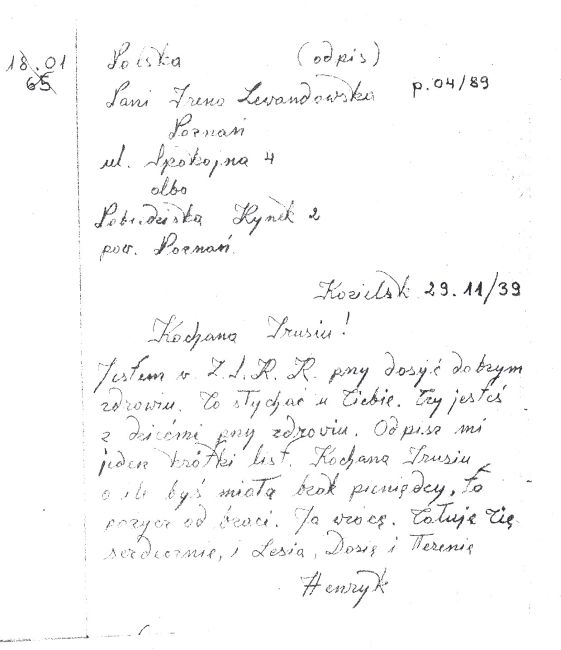 18.01
65
Polska (odpis)
Pani Irena Lewandowska p.04/89
Poznań
ul. Spokojna 4
albo
Pobiedziska Rynek 2
pow. Poznań.
Kozielsk 29.11/39
Kochana Irusiu!
Jestem w Z.S.R.R. przy dosyć dobrym
zdrowiu. Co słychać u Ciebie. Czy jesteś
z dziećmi przy zdrowiu. Odpisz mi
jeden krótki list. Kochana Irusiu
o ile byś miała brak pieniędzy, to
pożycz od braci. Ja wrócę. Całuję Cię
serdecznie, i Lesia, Dosię i Terenię
Henryk